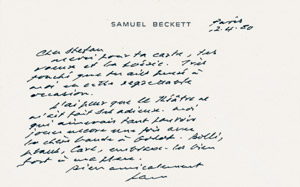 SAMUEL BECKETT
Paris
2.4.80
Cher Stefan
merci pour ta carte, tes
voeux et la poésie. Très
touché que tu aies pensé à
moi en cette respectable
occasion.
J'ai peur que le théâtre ne
m'ait fait ses adieux. moi
qui aimerais tant pouvoir
jouer encore une fois avec
la chère bande à Godot. Bollmann
Carl, embrasse-les bien
fort à ma place.
Bien amicalement
Sam